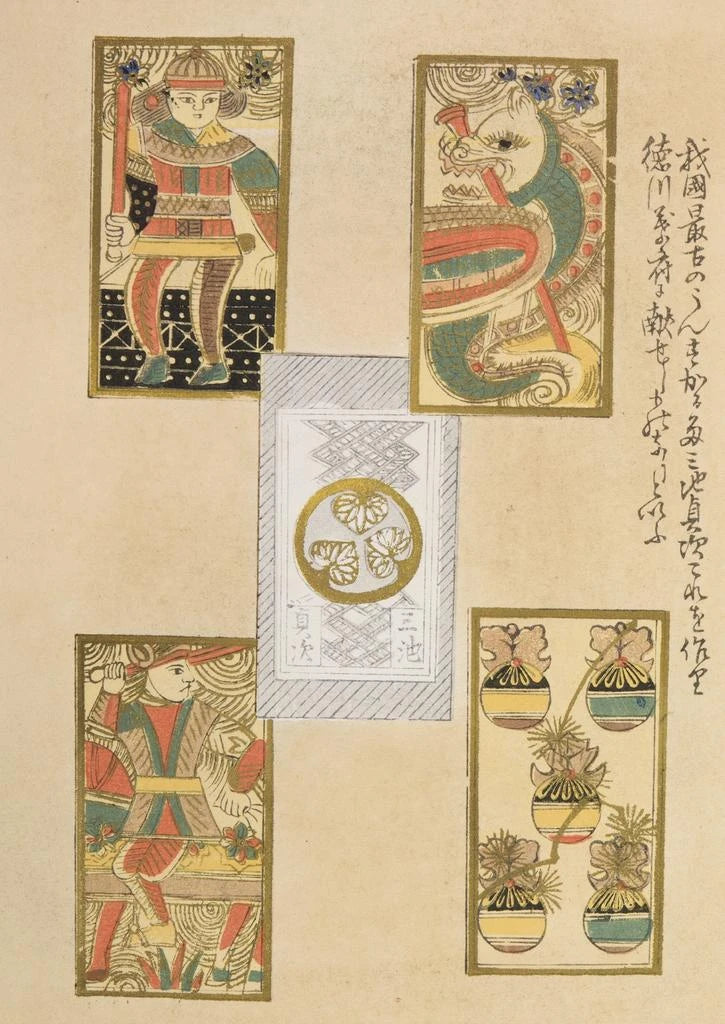 我國最古のうんすかるた三池貞次これを作り
徳川幕府に献せしものなりといふ
三池
貞次